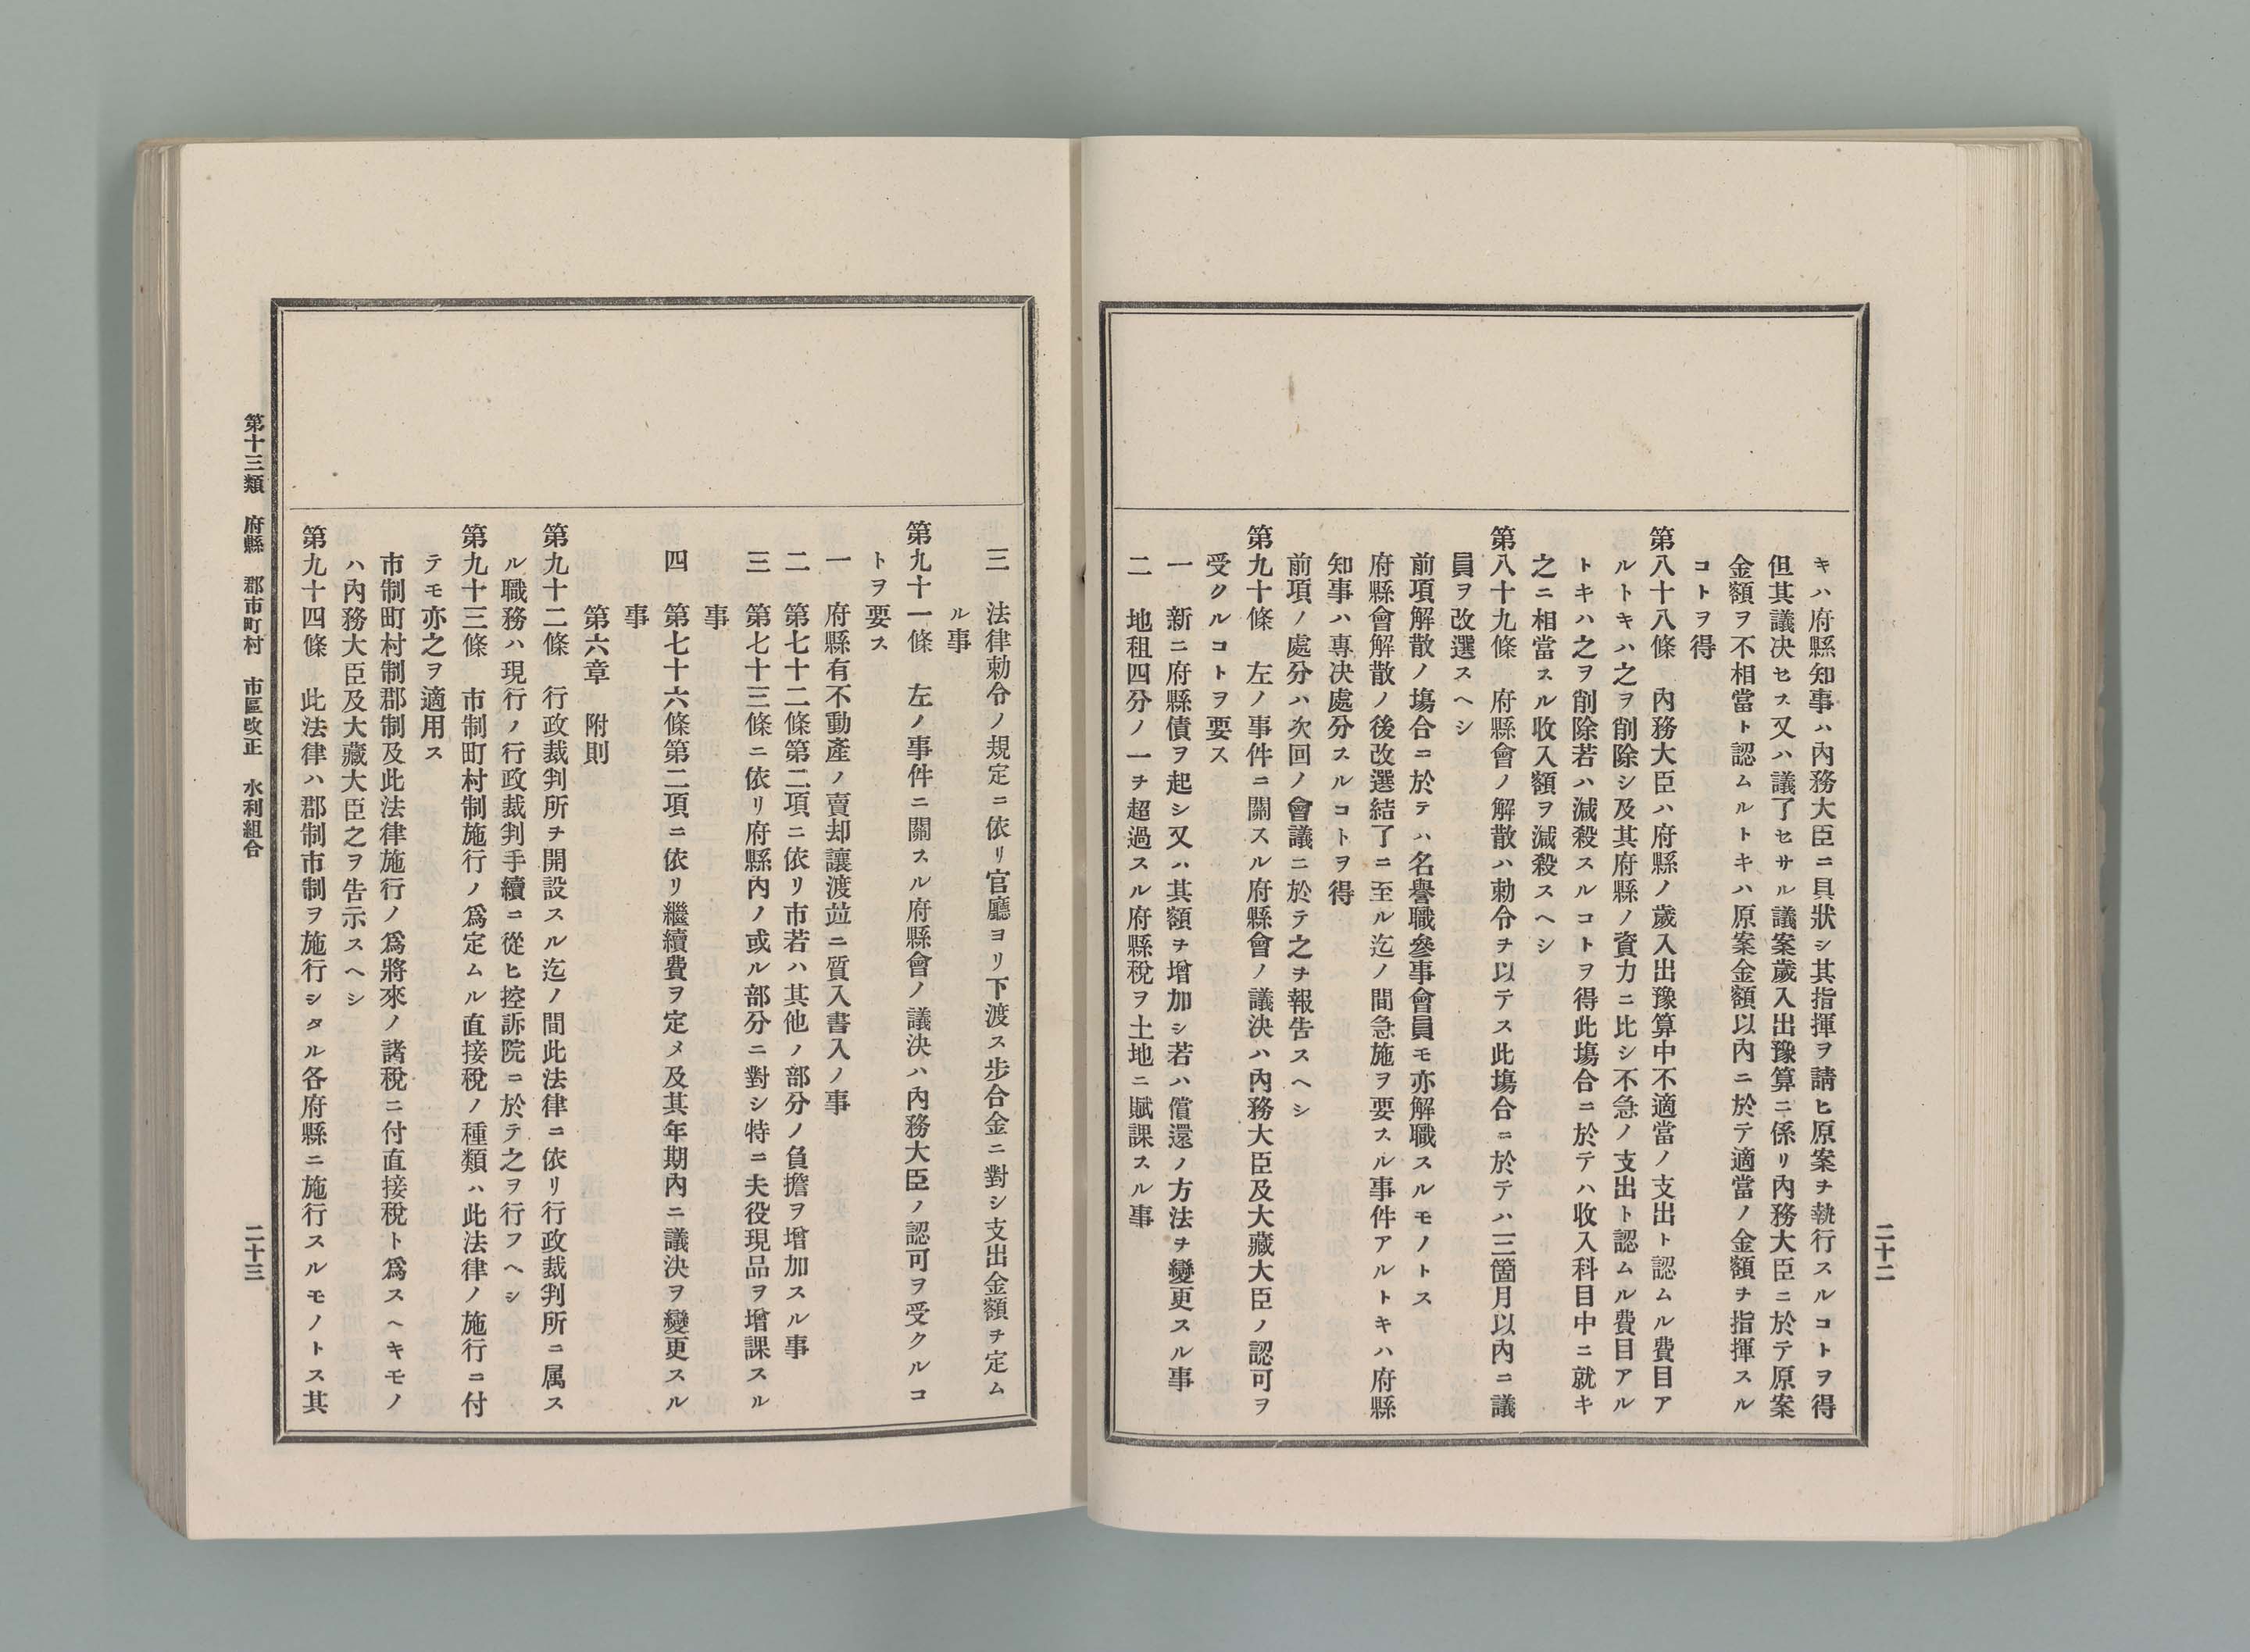 キハ府縣知事ハ內務大臣ニ具狀シ其指揮ヲ請ヒ原案ヲ執行スルコトヲ得
但其議決セス又ハ議了セサル議案歲入出豫算ニ係リ內務大臣ニ於テ原案
金額ヲ不相當ト認ムルトキハ原案金額以內ニ於テ適當ノ金額ヲ指揮スル
コトヲ得
第八十八條　內務大臣ハ府縣ノ歲入出豫算中不適當ノ支出ト認ムル費目ア
ルトキハ之ヲ削除シ及其府縣ノ資力ニ比シ不急ノ支出ト認ムル費目アル
トキハ之ヲ削除若ハ減殺スルコトヲ得此塲合ニ於テハ收入科目中ニ就キ
之ニ相當スル收入額ヲ減殺スヘシ
第八十九條　府縣會ノ解散ハ勅令ヲ以テス此塲合ニ於テハ三箇月以內ニ議
員ヲ改選スヘシ
前項解散ノ塲合ニ於テハ名譽職參事會員モ亦解職スルモノトス
府縣會解散ノ後改選結了ニ至ル迄ノ間急施ヲ要スル事件アルトキハ府縣
知事ハ專決處分スルコトヲ得
前項ノ處分ハ次回ノ會議ニ於テ之ヲ報告スヘシ
第九十條　左ノ事件ニ關スル府縣會ノ議決ハ內務大臣及大藏大臣ノ認可ヲ
受クルコトヲ要ス
一　新ニ府縣債ヲ起シ又ハ其額ヲ增加シ若ハ償還ノ方法ヲ變更スル事
二　地租四分ノ一ヲ超過スル府縣稅ヲ土地ニ賦課スル事
二十二
三　法律勅令ノ規定ニ依リ官廳ヨリ下渡ス步合金ニ對シ支出金額ヲ定ム
ル事
第九十一條　左ノ事件ニ關スル府縣會ノ議決ハ內務大臣ノ認可ヲ受クルコ
トヲ要ス
一　府縣有不動產ノ賣却讓渡並ニ質入書入ノ事
二　第七十二條第二項ニ依リ市若ハ其他ノ部分ノ負擔ヲ增加スル事
三　第七十三條ニ依リ府縣內ノ或ル部分ニ對シ特ニ夫役現品ヲ增課スル
事
四　第七十六條第二項ニ依リ繼續費ヲ定メ及其年期內ニ議決ヲ變更スル
事
第六章　附則
第九十二條　行政裁判所ヲ開設スル迄ノ間此法律ニ依リ行政裁判所ニ属ス
ル職務ハ現行ノ行政裁判手續ニ從ヒ控訴院ニ於テ之ヲ行フヘシ
第九十三條　市制町村制施行ノ爲定ムル直接稅ノ種類ハ此法律ノ施行ニ付
テモ亦之ヲ適用ス
市制町村制郡制及此法律施行ノ爲將來ノ諸稅ニ付直接稅ト爲スヘキモノ
ハ內務大臣及大藏大臣之ヲ告示スヘシ
第九十四條　此法律ハ郡制市制ヲ施行シタル各府縣ニ施行スルモノトス其
第十三類　府縣　郡市町村　市區改正　水利組合
二十三